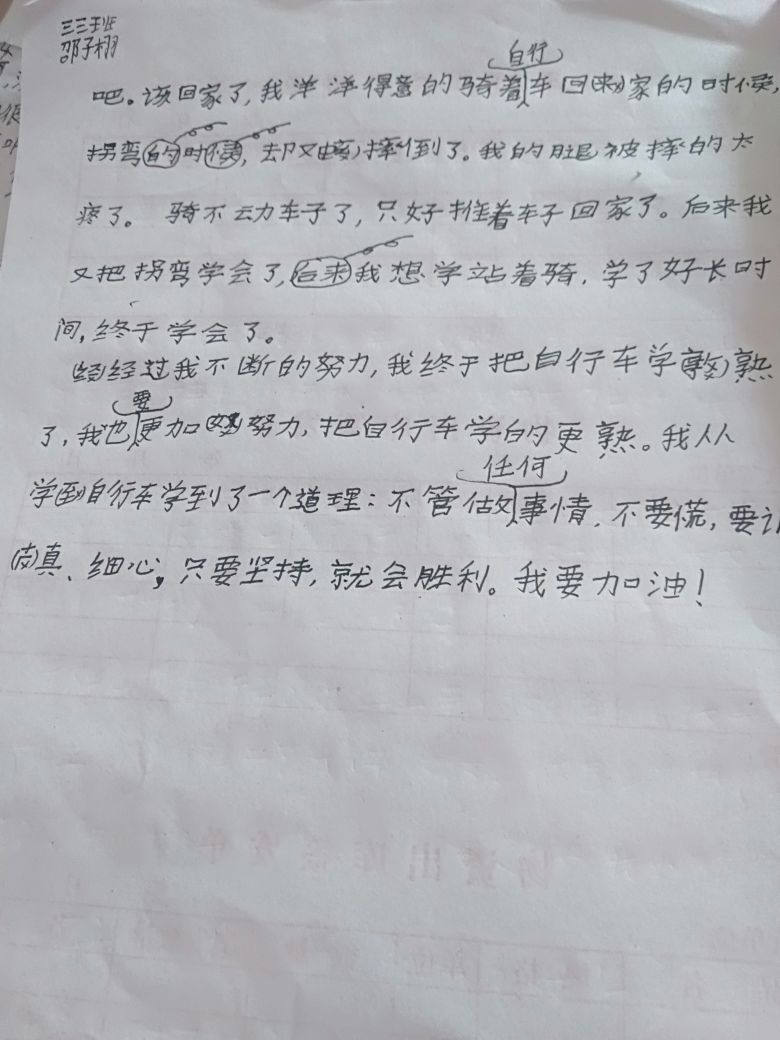 三三班
邵子栩
吧。该回家了,我洋洋得意的骑着自行车回家的时候,
拐弯的时候,却又摔倒了。我的腿被摔的太
疼了。骑不动车子了,只好推着车子回家了。后来我
又把拐弯学会了,后来我想学站着骑,学了好长时
间,终于学会了。
经过我不断的努力,我终于把自行车学熟
了,我也要更加努力,把自行车学的更熟。我从
学自行车学到了一个道理:不管做任何事情,不要慌,要认
真、细心,只要坚持,就会胜利。我要加油!